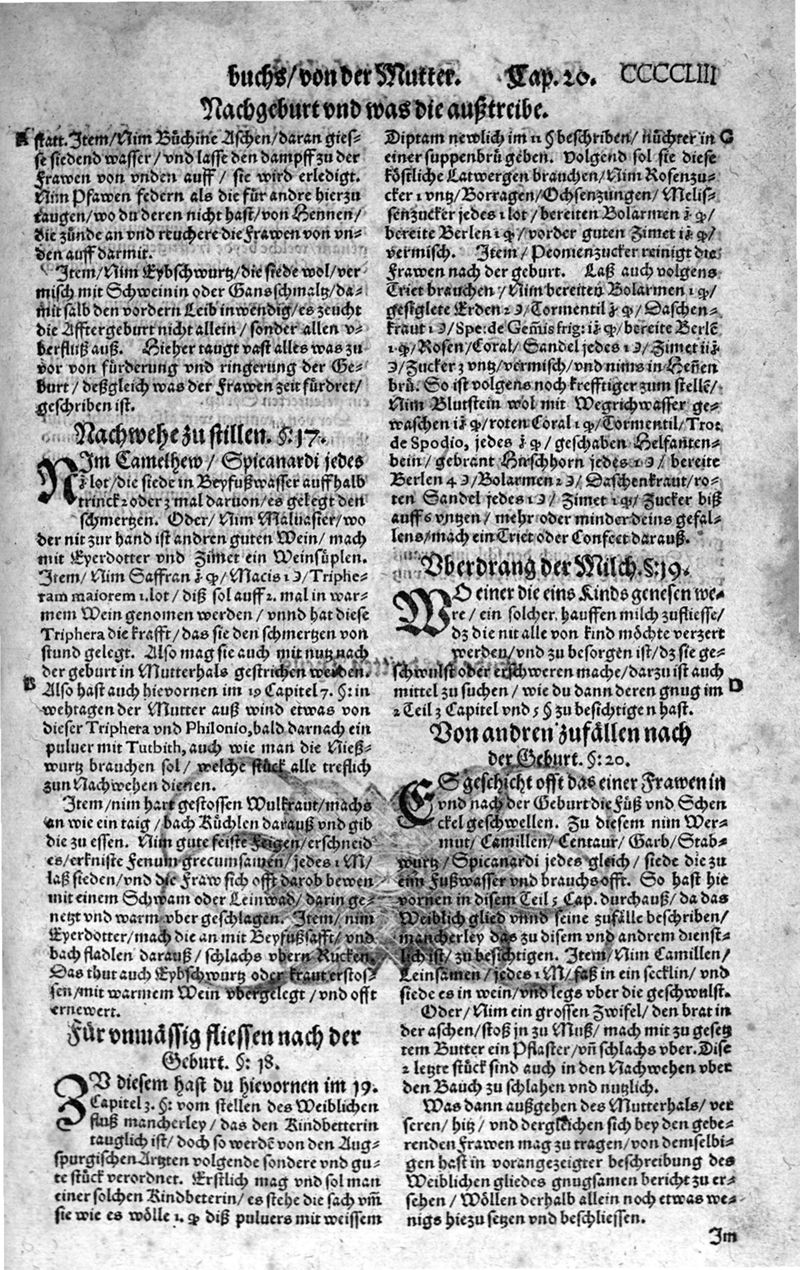 buchs/von der Mutter. Cap. 20. CCCCLIII
Nachgeburt vnd was die außtreibe.
A statt. Item/Nim Büchine Aschen/daran gies-
se siedend wasser/vnd lasse den dampff zu der
Frawen von vnden auff/sie wird erledigt.
Nim Pfawen federn als die für andre hierzu
taugen/wo du deren nicht hast/von Hennen/
die zünde an vnd reuchere die Frawen von vn-
den auff darmit.
Item/Nim Eybschwurtz/die siede wol/ver
misch mit Schweinin oder Gansschmaltz/da-
mit salb den vordern Leib inwendig/es zeucht
die Afftergeburt nicht allein/sonder allen v-
berfluß auß. Hieher taugt vast alles was zu
vor von fürderung vnd ringerung der Ge-
burt/deßgleich was der Frawen zeit fürdret/
geschriben ist.
Nachwehe zu stillen. §. 17.
NIm Camelhew/Spicanardi jedes
lot/die siede in Beyfußwasser auff halb
trinck 2 oder 3 mal daruon/es gelegt den
schmertzen. Oder/Nim Maluasier/wo
der nit zur hand ist andren guten Wein/mach
mit Eyerdotter vnd Zimet ein Weinsüplen.
Item/Nim Saffran Macis 1 Triphe-
ram maiorem 1. lot/diß sol auff 2. mal in war-
mem Wein genomen werden/vnnd hat diese
Triphera die krafft/das sie den schmertzen von
stund gelegt. Also mag sie auch mit nutz nach
der geburt in Mutterhals gestrichen werden.
B Also hast auch hievornen im 19 Capitel 7. §: in
wehtagen der Mutter auß wind etwas von
dieser Triphera vnd Philonio, bald darnach ein
puluer mit Turbith, auch wie man die Nieß-
wurtz brauchen sol/welche stück alle treflich
zun Nachwehen dienen.
Item/nim hart gestossen Wulkraut/machs
an wie ein taig/bach Küchlen darauß vnd gib
die zu essen. Nim gute feiste Feigen/erschneid
es/erkniste Fenum grecumsamen/jedes 1 M/
laß sieden/vnd die Fraw sich offt darob bewen
mit einem Schwam oder Leinwad/darin ge-
netzt vnd warm vber geschlagen. Item/nim
Eyerdotter/mach die an mit Beyfußsafft/vnd
bach fladlen darauß/schlachs vbern Rucken.
Das thut auch Eybschwurtz oder kraut erstos-
sen/mit warmem Wein vbergelegt/vnd offt
ernewert.
Für vnmässig fliessen nach der
Geburt. §: 18.
ZV diesem hast du hievornen im 19.
Capitel 3. §: vom stellen des Weiblichen
fluß mancherley/das den Kindbetterin
tauglich ist/doch so werdē von den Aug-
spurgischen Artzten volgende sondere vnd gu-
te stück verordnet. Erstlich mag vnd sol man
einer solchen Kindbetterin/es stehe die sach vm̄
sie wie es wölle 1. diß puluers mit weissem
Diptam newlich im 11 § beschriben/nüchter in C
einer suppenbrü geben. Volgend sol sie diese
köstliche Latwergen brauchen/Nim Rosenzu-
cker 1 vntz/Borragen/Ochsenzungen/Melis-
senzucker jedes 1 lot/bereiten Bolarmen
bereite Berlen 1 vorder guten Zimet
vermisch. Item/Peomenzucker reinigt die
Frawen nach der geburt. Laß auch volgens
Triet brauchen/Nim bereiten Bolarmen 1
gestglete Erden 2 Tormentil Daschen-
kraut 1 Spe: de Gem̄is frig: bereite Berlē
1 Rosen/Coral/Sandel jedes 1 Zimet
Zucker 3 vntz/vermisch/vnd nims in Heñen
brü. So ist volgens noch krefftiger zum stellē/
Nim Blutstein wol mit Wegrichwasser ge-
waschen roten Coral 1 Tormentil/Troc.
de Spodio, jedes geschaben Helfanten-
bein/gebrant Hirschhorn jedes 1 bereite
Berlen 4 Bolarmen 2 Daschenkraut/ro-
ten Sandel jedes 1 Zimet 1 Zucker biß
auff 6 vntzen/mehr oder minder deins gefal-
lens/mach ein Triet oder Confect darauß.
Vberdrang der Milch. §: 19.
WO einer die eins Kinds genesen we-
re/ein solcher hauffen milch zufliesse/
dz die nit alle von kind möchte verzert
werden/vnd zu besorgen ist/dz sie ge-
schwulst oder erschweren mache/darzu ist auch
mittel zu suchen/wie du dann deren gnug im D
2 Teil 3 Capitel vnd 5 § zu besichtigen hast.
Von andren zufällen nach
der Geburt. §: 20.
ES geschicht offt das einer Frawen in
vnd nach der Geburt die Füß vnd Schen
ckel geschwellen. Zu diesem nim Wer-
mut/Camillen/Centaur/Garb/Stab-
wurtz/Spicanardi jedes gleich/siede die zu
eim Fußwasser vnd brauchs offt. So hast hie
vornen in disem Teil 5 Cap. durchauß/da das
Weiblich glied vnnd seine zufälle beschriben/
mancherley das zu disem vnd andrem dienst-
lich ist/zu besichtigen. Item/Nim Camillen/
Leinsamen/jedes 1 M/faß in ein secklin/vnd
siede es in wein/vnd legs vber die geschwulst.
Oder/Nim ein grossen Zwifel/den brat in
der aschen/stoß jn zu Muß/mach mit zu gesetz
tem Butter ein Pflaster/vñ schlachs vber. Dise
2 letzte stück sind auch in den Nachwehen vber
den Bauch zu schlahen vnd nutzlich.
Was dann außgehen des Mutterhals/ver
seren/hitz/vnd dergleichen sich bey den gebe-
renden Frawen mag zu tragen/von demselbi-
gen hast in vorangezeigter beschreibung des
Weiblichen gliedes gnugsamen bericht zu er-
sehen/Wöllen derhalb allein noch etwas we-
nigs hiezu setzen vnd beschliessen.
Im